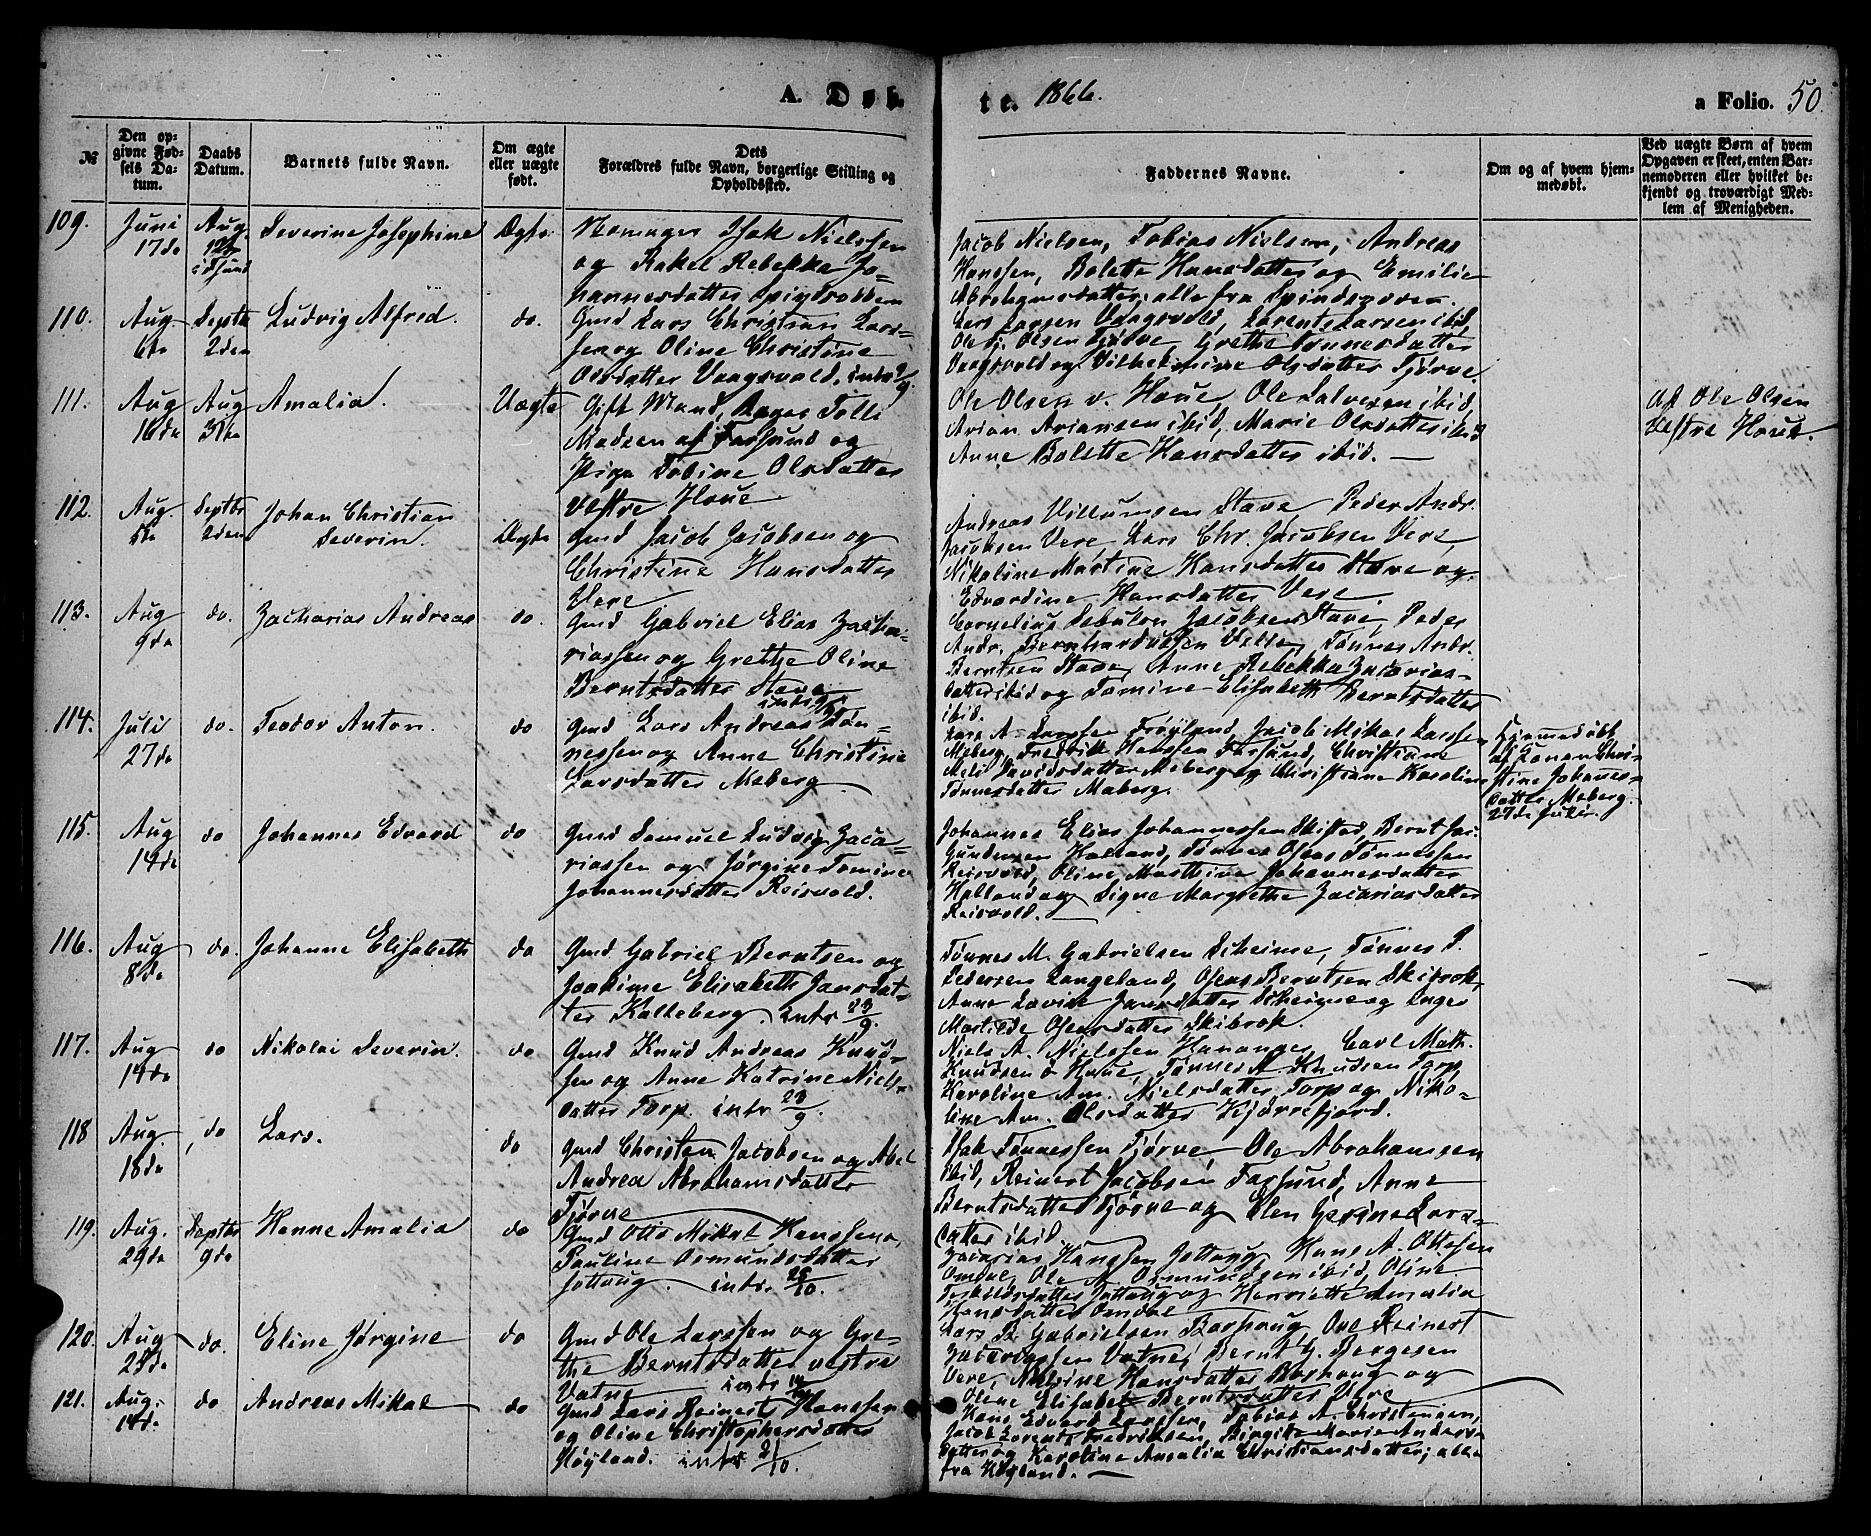 A. Døb-
te. 1866.
a Folio. 50.
№
Den op-
givne Fød-
sels Da-
tum.
Daabs
Datum.
Barnets fulde Navn.
Om ægte
eller uægte
født.
Dets
Forældres fulde Navn, borgerlige Stilling og
Opholdssted.
Faddernes Navne.
Om og af hvem hjem-
medøbt.
Ved uægte Børn af hvem
Opgaven er skeet, enten Bar-
nemoderen eller hvilket be-
kjendt og troværdigt Med-
lem af Menigheden.
109.
Juni
17de
Aug.
12te
Severine Josephine
Ægte
Isak Nielssen
og Rakel Rebekka Jo-
hannesdatter Spindsodden
Jacob Nielsen, Tobias Nielsen, Andreas
Hanssen, Bolette Hansdatter og Emilie
Abrahamsdatter, alle fra Spindsodden.
110.
Aug.
6te
Septbr
2den
Ludvig Alfred.
do.
Gmd Lars Christian Lars-
sen og Oline Christine
Olsdatter Vaagsvold. intr
Lars Larsen Vaagsvold, Larents Larsen ibid,
Ole Olsen Tjørve, Grethe Tønnesdatter
Vaagsvold og Vilhelmine Olsdatter Tjørve.
111.
Aug
16de
Aug
31te
Amalia.
Uægte
Gift Mand, Tolle
Madsen af Farsund og
Pige Tobine Olsdatter
Vestre Houe
Ole Olsen v. Houe, Ole Salvesen ibid,
Arian Ariansen ibid, Marie Olsdatter ibid
Anne Bolette Hansdatter ibid.
Af Ole Olsen
Vestre Houe.
112.
Aug.
5te
Septbr
2den
Johan Christian
Severin.
Ægte
Gmd Jacob Jacobsen og
Christine Hansdatter
Vere
Andreas Villumsen Stave, Peder Andr.
Jacobsen Vere, Lars Chr. Jacobsen Vere,
Nikoline Martine Hansdatter Stave og
Edvardine Hansdatter Vere.
113.
Aug
9de
do.
Zacharias Andreas
do.
Gmd Gabriel Elias Zacha-
riassen og Grethe Oline
Berntsdatter Stave
Cornelius Sebulon Jacobsen Stave, Peder
Andr. Bernhardussen Velle, Tønnes Andr.
Berntsen Stave, Anne Rebekka Zacarias-
datter ibid og Tomine Elisabeth Berntsdatter
ibid.
114.
Juli
27de
do.
Teodor Anton.
do
Gmd Lars Andreas Tøn-
nessen og Anne Christine
Larsdatter Meberg
Lars A. Larssen Frøyland, Jacob Mikal Larssen
Meberg, Fredrik Hanssen Farsund, Christiane
Meli Davidsdatter Meberg og Christiane Karoline
Tønnesdatter Meberg.
Hjemmedøbt
af Konen Chri-
stine Johannes-
datter Meberg.
27de Juli.
115.
Aug
14de
do
Johannes Edvard
do
Gmd Samuel Ludvig Zaca-
riassen og Jørgine Tomine
Johannesdatter Reisvold.
Johannes Elias Johannessen Skifted, Bernt Jac.
Gundersen Halland, Tønnes Tønnessen
Reisvold, Oline Mathine Johannesdatter
Halland og Signe Margrethe Zacariasdatter
Reisvold.
116.
Aug
8de
do.
Johanne Elisabeth
do
Gmd Gabriel Berntsen og
Joakime Elisabeth Jansdat-
ter Kalleberg. intr 23/9.
Tønnes M. Gabrielsen Scheime, Tønnes P.
Pedersen Langeland, Berntsen Skibrok,
Anne Lovise Jansdatter Scheime og Inger
Martilde Skibrok.
117.
Aug
14de
do
Nikolai Severin.
do
Gmd Knud Andreas Knud-
sen og Anne Katrine Niels-
datter Torp. intr 23/9.
Niels A. Nielssen Hananger, Carl Math.
Knudsen ø Houe, Tønnes A Knudsen Torp,
Karoline Am. Nielsdatter Torp og Niko-
line Am. Olsdatter Kjørrefjord.
118
Aug
18de
do
Lars.
do
Gmd Christen Jacobsen og Abel
Andrea Abrahamsdatter
Tjørve
Isak Tønnessen Tjørve, Ole Abrahamsen
ibid, Reinert Jacobsen Farsund, Anne
Berntsdatter Tjørve og Elen Gesine Lars-
datter ibid.
119.
Aug.
29de
Septbr
9de
Hanne Amalia
do
Gmd Otto Mikal Hanssen
Pauline Osmundsdatter
Jøllaug. intr.
Zacarias Hanssen Jøllaug, Hans A. Ottesen
Omdal, Ole A. Osmundsen ibid, Oline
Torkildsdatter Jøllaug og Henriette Amalia
Hansdatter Omdal
120.
Aug
28de
do.
Eline Jørgine
do
Gmd Ole Larssen og Gre-
the Berntsdatter vestre
Vatne intr
Lars B. Gabrielsen Borhaug, Ole Reinert
Zacariassen Vatne, Bernt G. Børgesen
Vere, Hansdatter Borhaug og
Oline Elisabet Berntsdatter Vere
121.
Aug.
14de
do
Andreas Mikal
do
Gmd Lars Reinert Hanssen
og Oline Christophersdatter
Høyland. intr
Hans Edvard Larssen, Tobias A. Christensen,
Jacob Lorents Fredriksen, Birgitte Marie Anders-
datter og Karoline Amalia Christiansdatter, alle
fra Høyland.